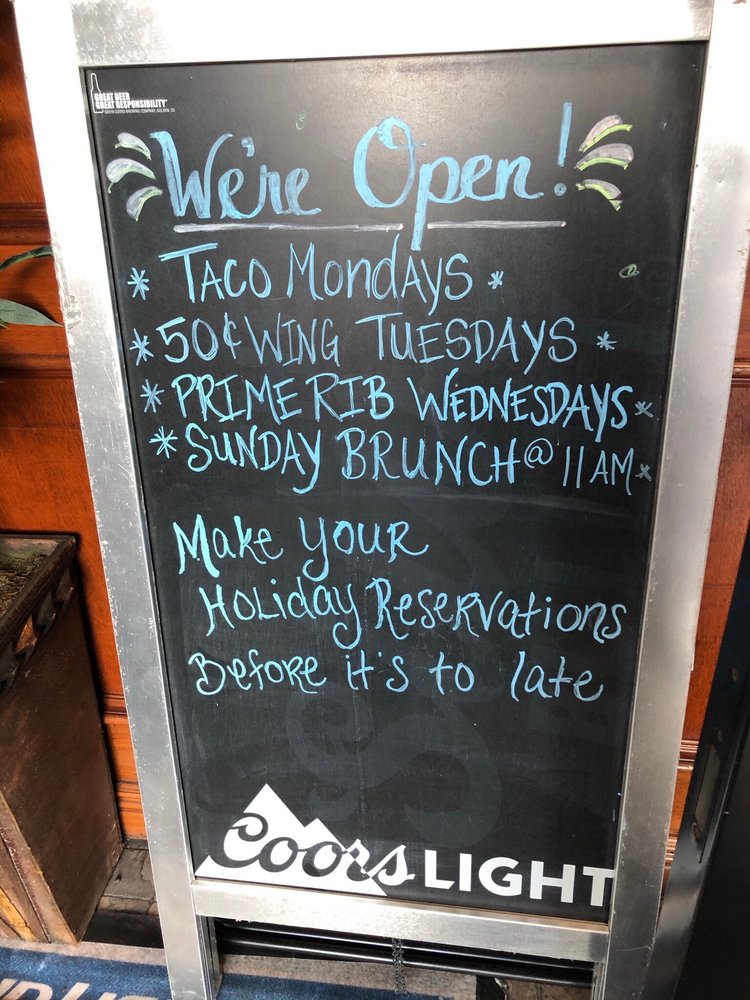 GREAT BEER
GREAT RESPONSIBILITY®
We're Open!
* TACO MONDAYS *
* 50¢ WING TUESDAYS *
* PRIME RIB WEDNESDAYS *
* SUNDAY BRUNCH @ 11AM *
Make your
Holiday Reservations
Before it's to late
Coors LIGHT